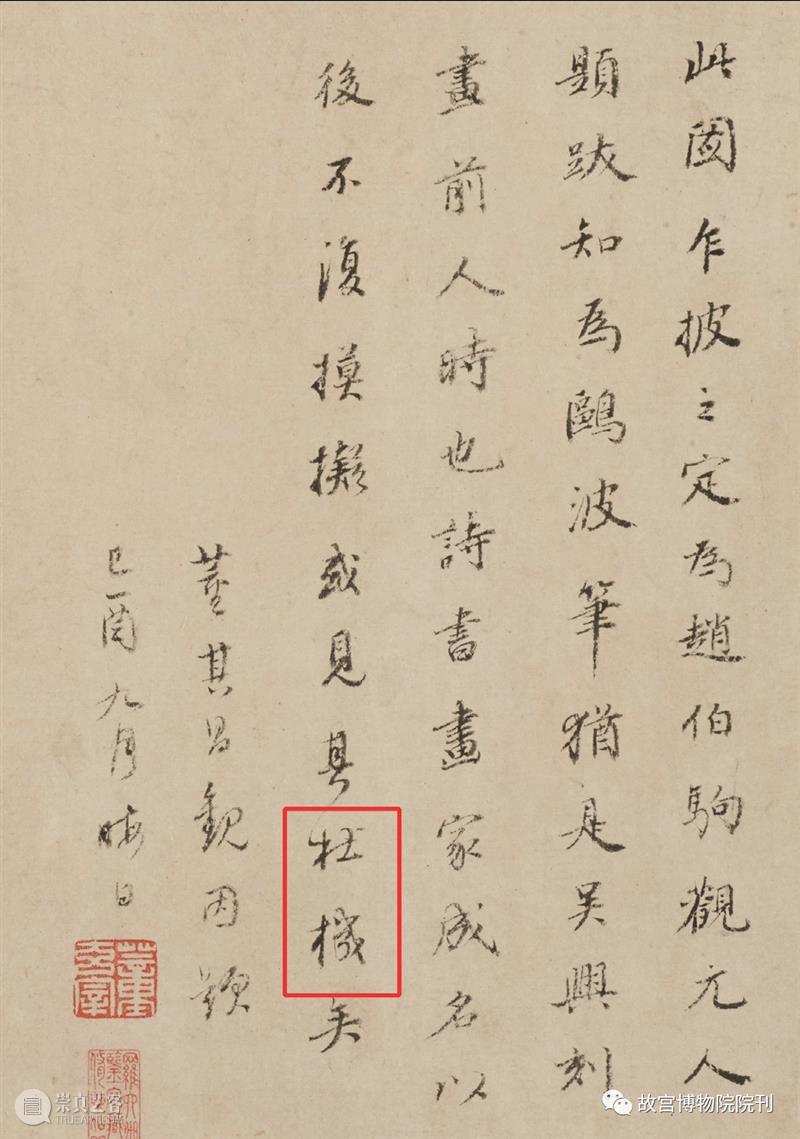 此圖乍披之定為趙伯駒觀元人
題跋知為鷗波筆猶是吳興刻
畫前人時也詩書畫家成名以
後不復摸擬或見其杜機矣
董其昌觀因題
己酉九月晦日
崇真艺客
故宫博物院院刊